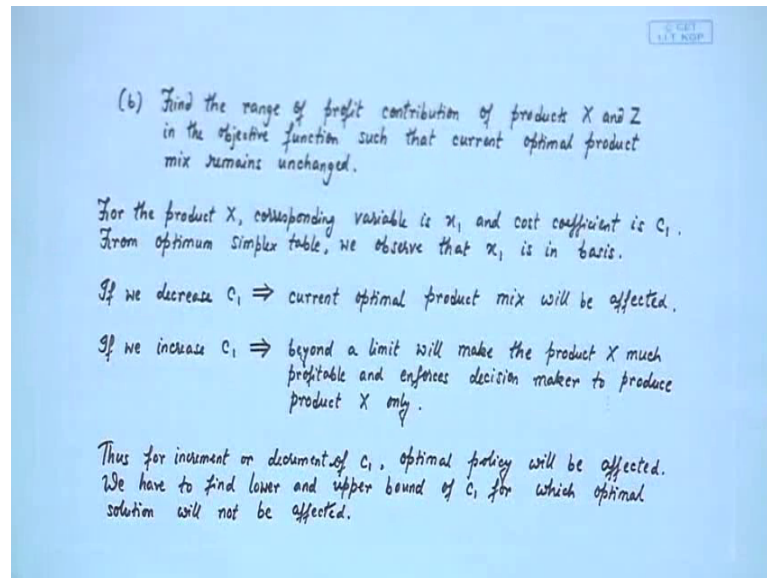 © CET
I.I.T. KGP
(b) Find the range of profit contribution of products X and Z
in the objective function such that current optimal product
mix remains unchanged.
For the product X, corresponding variable is x₁ and cost coefficient is C₁.
From optimum simplex table, we observe that x₁ is in basis.
If we decrease C₁ ⇒ current optimal product mix will be affected.
If we increase C₁ ⇒ beyond a limit will make the product X much
profitable and enforces decision maker to produce
product X only.
Thus for increment or decrement of C₁, optimal policy will be affected.
We have to find lower and upper bound of C₁ for which optimal
solution will not be affected.